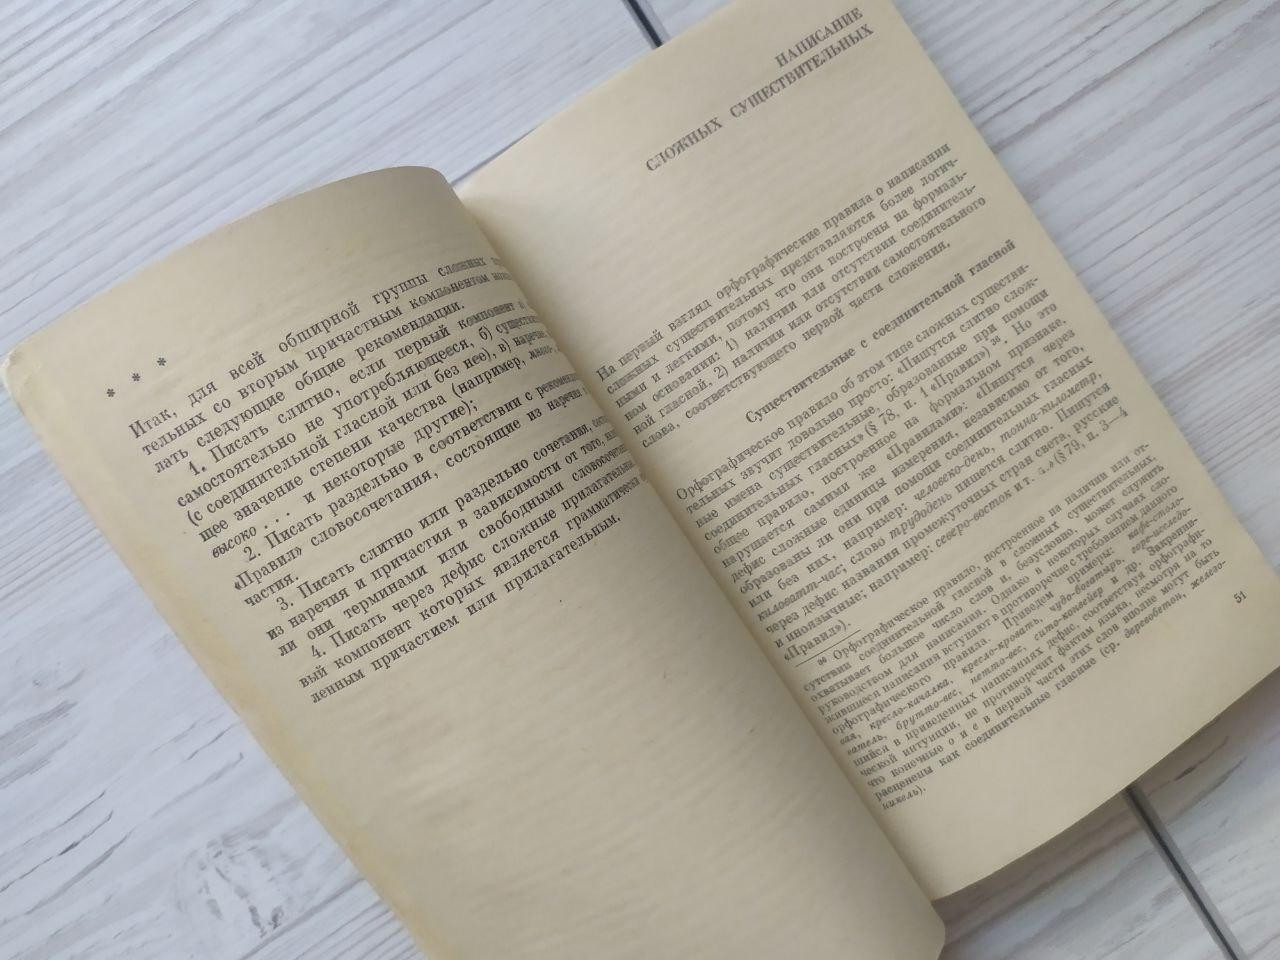 * * *
Итак, для всей обширной группы сложных
тельных со вторым причастным компонентом
лать следующие общие рекомендации.
1. Писать слитно, если первый компонент
самостоятельно не употребляющееся, б)
(с соединительной гласной или без нее), в) наречие,
щее значение степени качества (например, много-,
высоко... и некоторые другие);
2. Писать раздельно в соответствии с
«Правил» словосочетания, состоящие из наречия
частия.
3. Писать слитно или раздельно сочетания,
из наречия и причастия в зависимости от того,
ли они терминами или свободными
4. Писать через дефис сложные прилагательные,
вый компонент которых является грамматически
ленным причастием или прилагательным.
НАПИСАНИЕ
СЛОЖНЫХ СУЩЕСТВИТЕЛЬНЫХ
На первый взгляд орфографические правила о написании
сложных существительных представляются более логич-
ными и легкими, потому что они построены на формаль-
ном основании: 1) наличии или отсутствии соединитель-
ной гласной, 2) наличии или отсутствии самостоятельного
слова, соответствующего первой части сложения.
Существительные с соединительной гласной
Орфографическое правило об этом типе сложных существи-
тельных звучит довольно просто: «Пишутся слитно слож-
ные имена существительные, образованные при помощи
соединительных гласных» (§ 78, п. 1 «Правил») 36. Но это
общее правило, построенное на формальном признаке,
нарушается самими же «Правилами»: «Пишутся через
дефис сложные единицы измерения, независимо от того,
образованы ли они при помощи соединительных гласных
или без них, например: человеко-день, тонна-километр,
киловатт-час; слово трудодень пишется слитно. Пишутся
через дефис названия промежуточных стран света, русские
и иноязычные; например: северо-восток и т. д.» (§ 79, п. 3—4
«Правил»).
36 Орфографическое правило, построенное на наличии или от-
сутствии соединительной гласной в сложных существительных,
охватывает большое число слов и, безусловно, может служить
руководством для написания. Однако в некоторых случаях сло-
жившиеся написания вступают в противоречие с требованием данного
орфографического правила. Приведем примеры: кафе-столо-
вая, кресло-качалка, кресло-кровать, чудо-богатырь, горе-исследо-
ватель, брутто-вес, нетто-вес, сито-конвейер и др. Закрепив-
шийся в приведенных написаниях дефис, соответствуя орфографи-
ческой интуиции, не противоречит фактам языка, несмотря на то
что конечные о и е в первой части этих слов вполне могут быть
расценены как соединительные гласные (ср. деревобетон, железо-
никель).
51